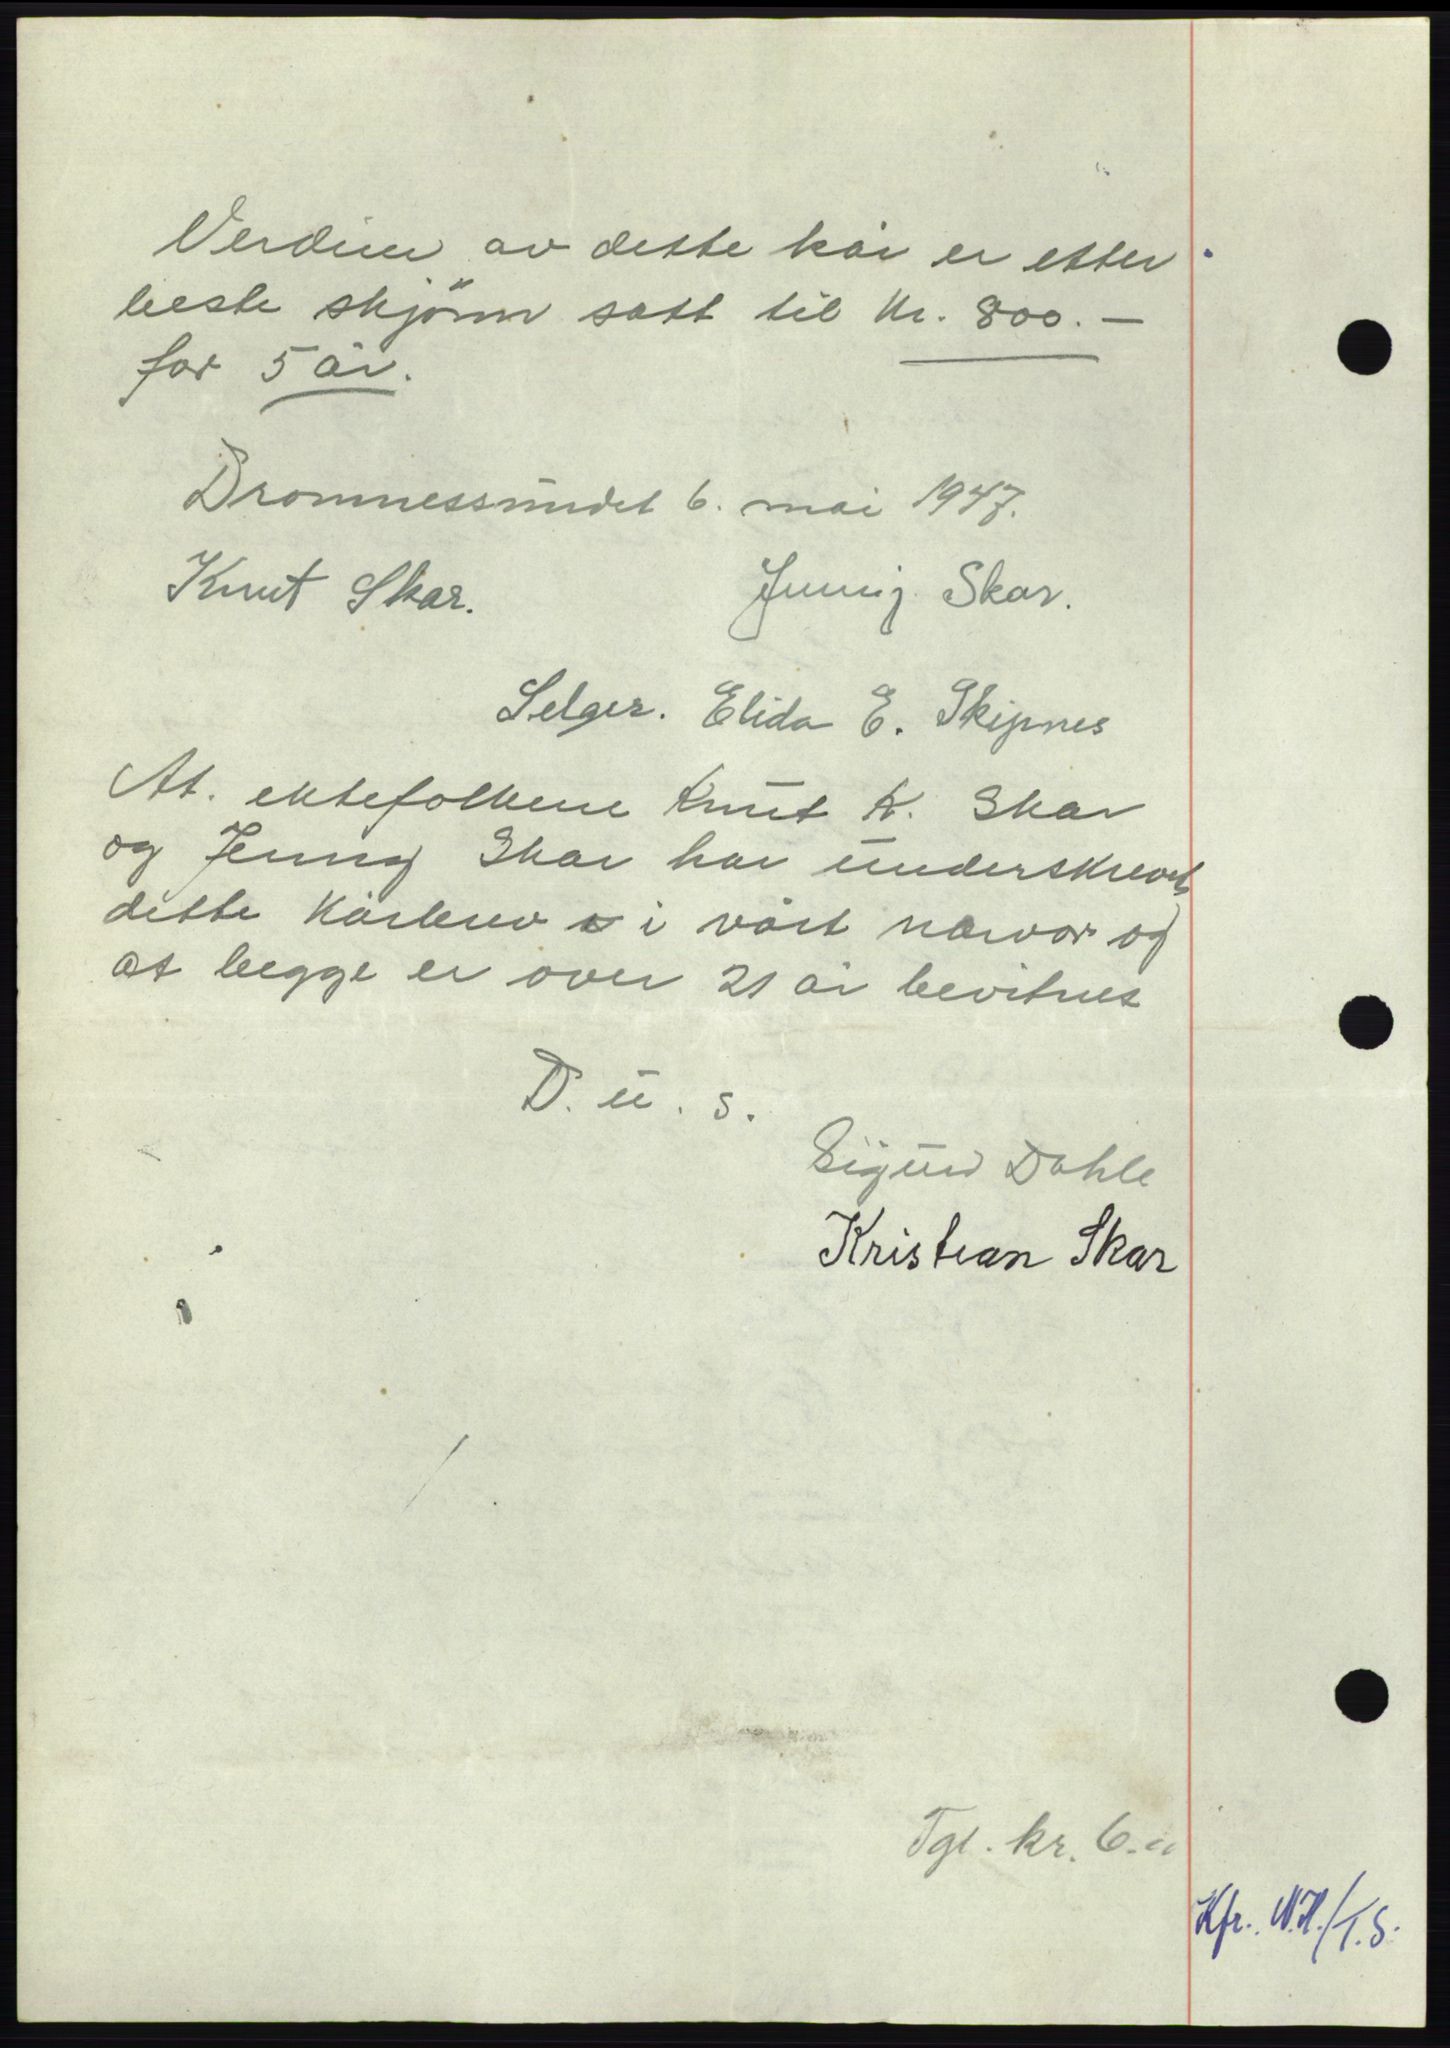 Verdien av dette kår er etter
beste skjönn satt til kr. 800.—
for 5 år.
Dromnessundet 6. mai 1947.
Knut Skar. Jenny Skar.
Selger. Elida E. Skipnes
At. ektefolkene Knut K. Skar
og Jenny Skar har underskrevet
dette kårbrev i vårt nærvær og
at begge er over 21 år bevitnes
D. u. s.
Sigurd Dahle
Kristian Skar
Tgl. kr. 6.-
Kfr. N.H./T.S.